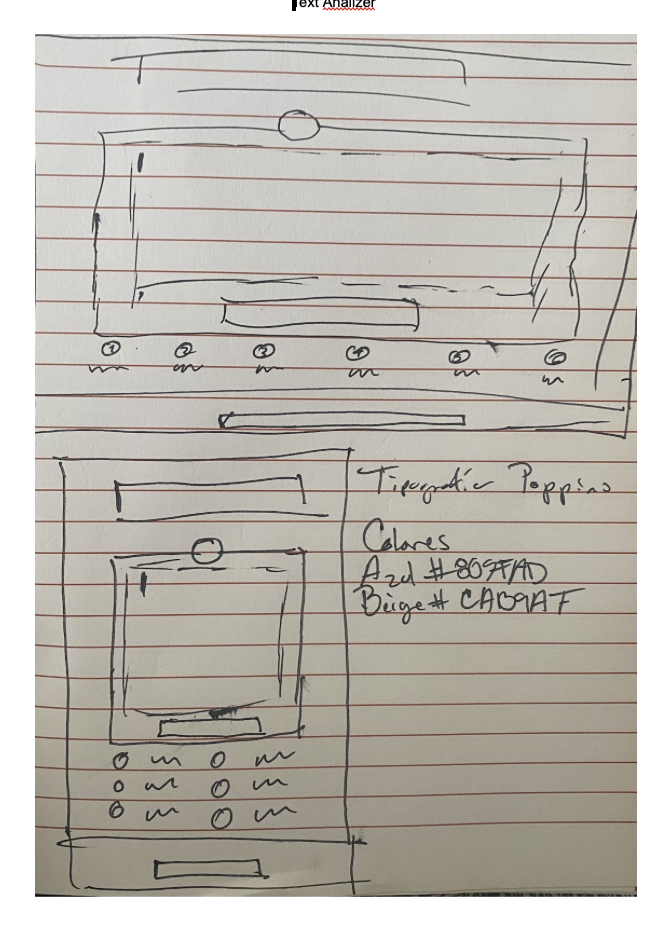 Text Analizer
1 2 3 4 5 6
Tipografía Poppins
Colores
Azul #809FAD
Beige# CAB9AF